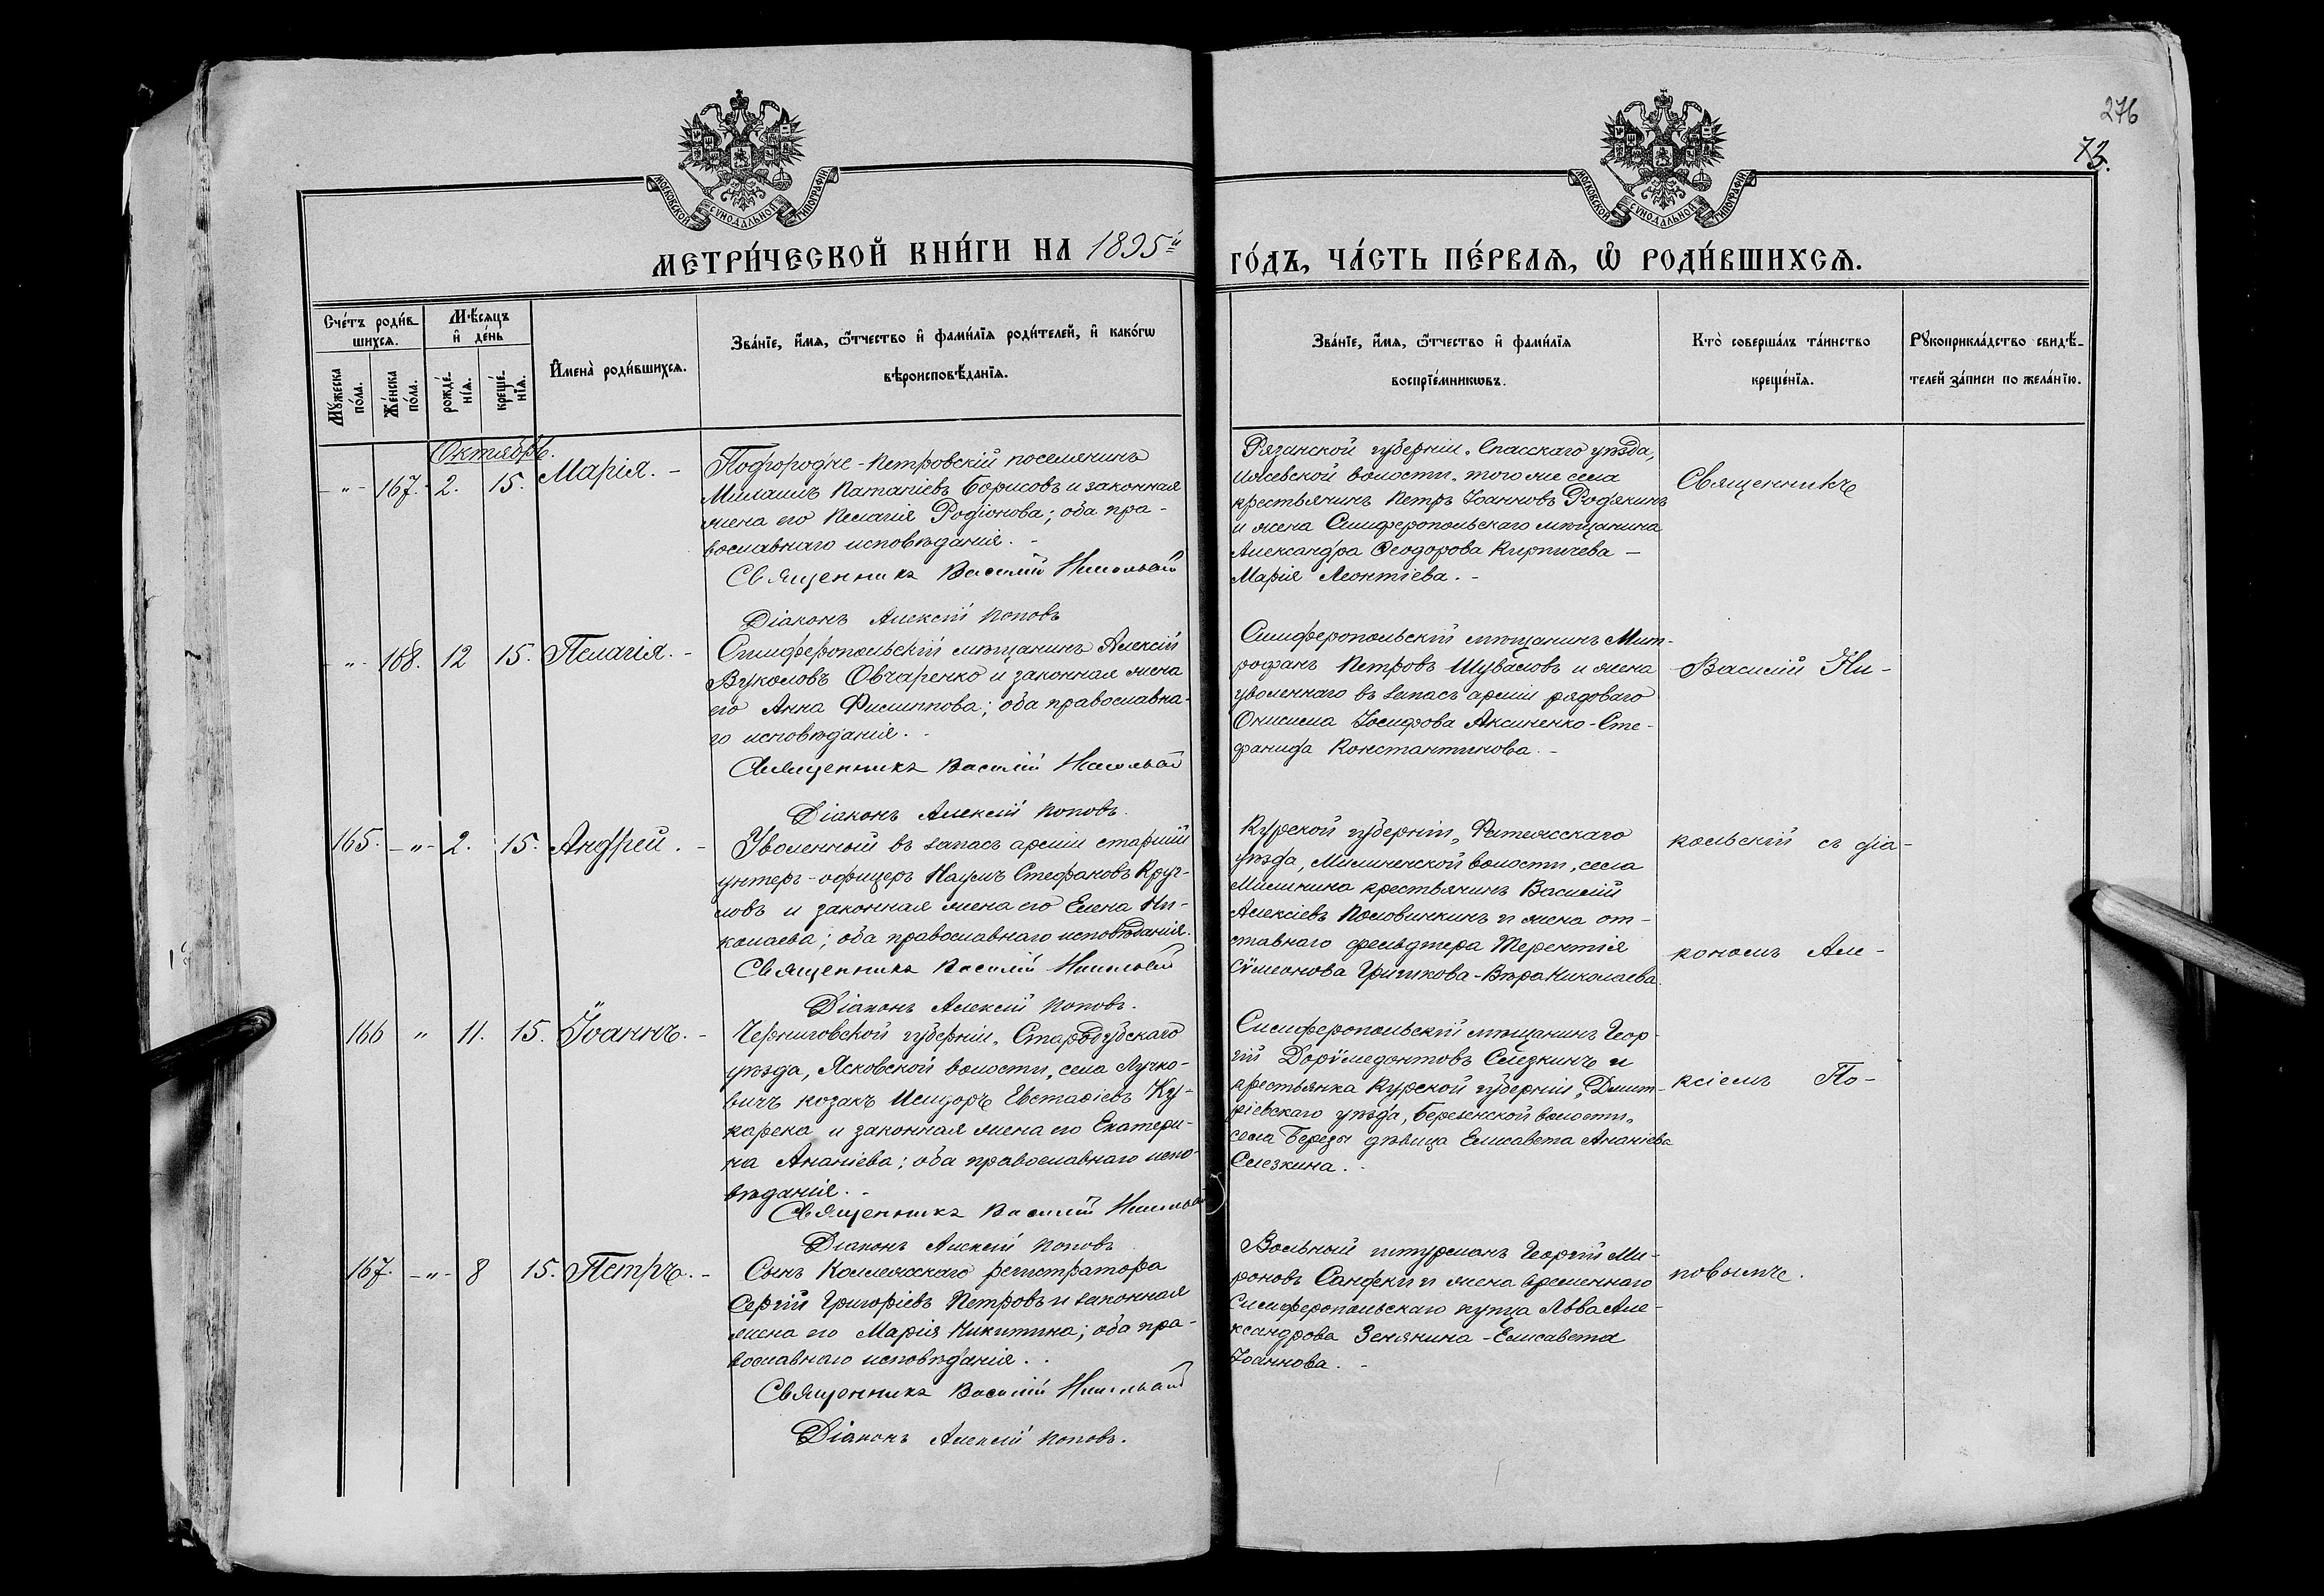 276
73.
МОСКОВСКОЙ СѴНОДАЛЬНОЙ ТИПОГРАФІИ
МОСКОВСКОЙ СѴНОДАЛЬНОЙ ТИПОГРАФІИ
МЕТРИ́ЧЕСКОЙ КНИ́ГИ НА 1895й
ГО́ДЪ, ЧА́СТЬ ПЕ́РВАѦ, Ѡ҆ РОДИ́ВШИХСѦ.
Сче́тъ роди́в-
шихсѧ.
Мꙋ́жеска по́ла.
Же́нска по́ла.
Мѣ́сѧцъ
и҆ де́нь
рожде́-нїѧ.
креще́-нїѧ.
И҆мена̀ роди́вшихсѧ.
Зва́нїе, и҆́мѧ, ѻ҆́тчество и҆ фами́лїѧ роди́телей, и҆ како́гѡ
вѣроисповѣ́данїѧ.
Зва́нїе, и҆́мѧ, ѻ҆́тчество и҆ фами́лїѧ
воспрїе́мникѡвъ.
Кто̀ соверша́лъ та́инство
креще́нїѧ.
Рꙋкоприкла́дство свидѣ́-
телей за́писи по жела́нїю.
Октябрь.
-"- 167. 2. 15. Марія. -
Подгородне-Петровскій поселянинъ
Михаилъ Патапіевъ Борисовъ и законная
жена его Пелагія Родіонова; оба пра-
вославнаго исповѣданія. -
Священникъ Василій Никольскій
Діаконъ Алексій Поповъ
Рязанской губерніи, Спасскаго уѣзда,
Ижевской волости, того же села
крестьянинъ Петръ Іоанновъ Родякинъ
и жена Симферопольскаго мѣщанина
Александра Ѳеодорова Кирпичева -
Марія Леонтіева. -
Священникъ
-"- 168. 12 15. Пелагія. -
Симферопольскій мѣщанинъ Алексій
Вуколовъ Овчаренко и законная жена
его Анна Филиппова; оба православна-
го исповѣданія. -
Священникъ Василій Никольскій
Діаконъ Алексій Поповъ.
Симферопольскій мѣщанинъ Мит-
рофанъ Петровъ Шуваловъ и жена
уволеннаго въ запасъ арміи рядоваго
Онисима Іосифова Аксиненко - Сте-
фанида Константинова. -
Василій Ни-
165. -"- 2. 15. Андрей. -
Уволенный въ запасъ арміи старшій
унтеръ-офицеръ Наумъ Стефановъ Круг-
ловъ и законная жена его Елена Ни-
колаева; оба православнаго исповѣданія.
Священникъ Василій Никольскій
Діаконъ Алексій Поповъ.
Курской губерніи, Фатежскаго
уѣзда, Миленинской волости, села
Миленина крестьянинъ Василій
Алексіевъ Половинкинъ и жена от-
ставнаго фельдшера Терентія
Сѵмеонова Гришкова - Вѣра Николаева.
кольскій съ діа-
кономъ Але-
166 " 11. 15. Іоаннъ. -
Черниговской губерніи, Стародубскаго
уѣзда, Ясковской волости, села Лучко-
вичъ козакъ Исидоръ Евстаѳіевъ Ку-
карека и законная жена его Екатери-
на Ананіева; оба православнаго испо-
вѣданія. -
Священникъ Василій Никольскій
Діаконъ Алексій Поповъ
Симферопольскій мѣщанинъ Геор-
гій Дорѵмедонтовъ Слезкинъ и
крестьянка Курской губерніи, Дмит-
ріевскаго уѣзда, Березенской волости,
села Березы дѣвица Елисавета Ананіева
Слезкина. -
ксіемъ По-
167. -"- 8 15. Петръ. -
Сынъ Коллежскаго регистратора
Сергій Григоріевъ Петровъ и законная
жена его Марія Никитина; оба пра-
вославнаго исповѣданія. -
Священникъ Василій Никольскій
Діаконъ Алексій Поповъ.
Вольный штурманъ Георгій Ми-
роновъ Санфеки и жена временнаго
Симферопольскаго купца Льва Але-
ксандрова Зенякина - Елисавета
Іоаннова. -
повымъ.